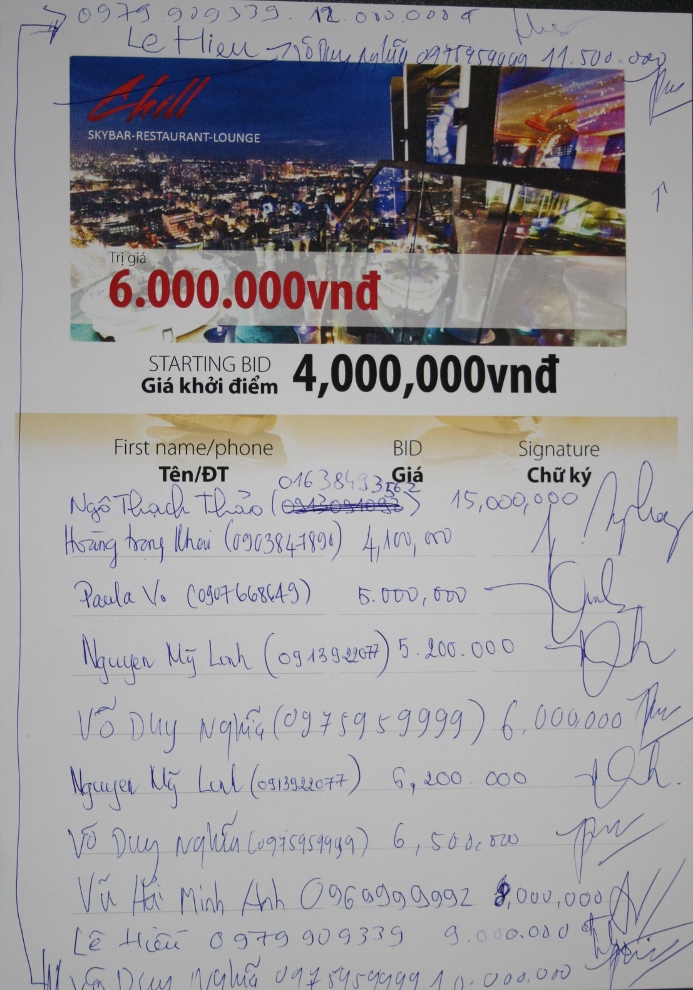 0979.909339. 12.000.000đ
Le Hieu Võ Duy Nghĩa 0975959999 11.500.000
Chill
SKYBAR-RESTAURANT-LOUNGE
Trị giá
6.000.000vnđ
STARTING BID
Giá khởi điểm 4,000,000vnđ
First name/phone BID Signature
Tên/ĐT Giá Chữ ký
Ngô Thạch Thảo (01638493562) 15,000,000
Hoàng Trọng Khai (0903847890) 4,100,000
Paula Vo (0907668649) 5.000,000
Nguyen Mỹ Linh (0913922077) 5.200.000
Võ Duy Nghĩa (0975959999) 6,000.000
Nguyen Mỹ Linh (0913922077) 6,200.000
Võ Duy Nghĩa (0975959999) 6,500,000
Vũ Hải Minh Anh 0969999992 8,000,000
Lê Hiếu 0979909339 9.000.000đ
Võ Duy Nghĩa 0975959999 10.000.000